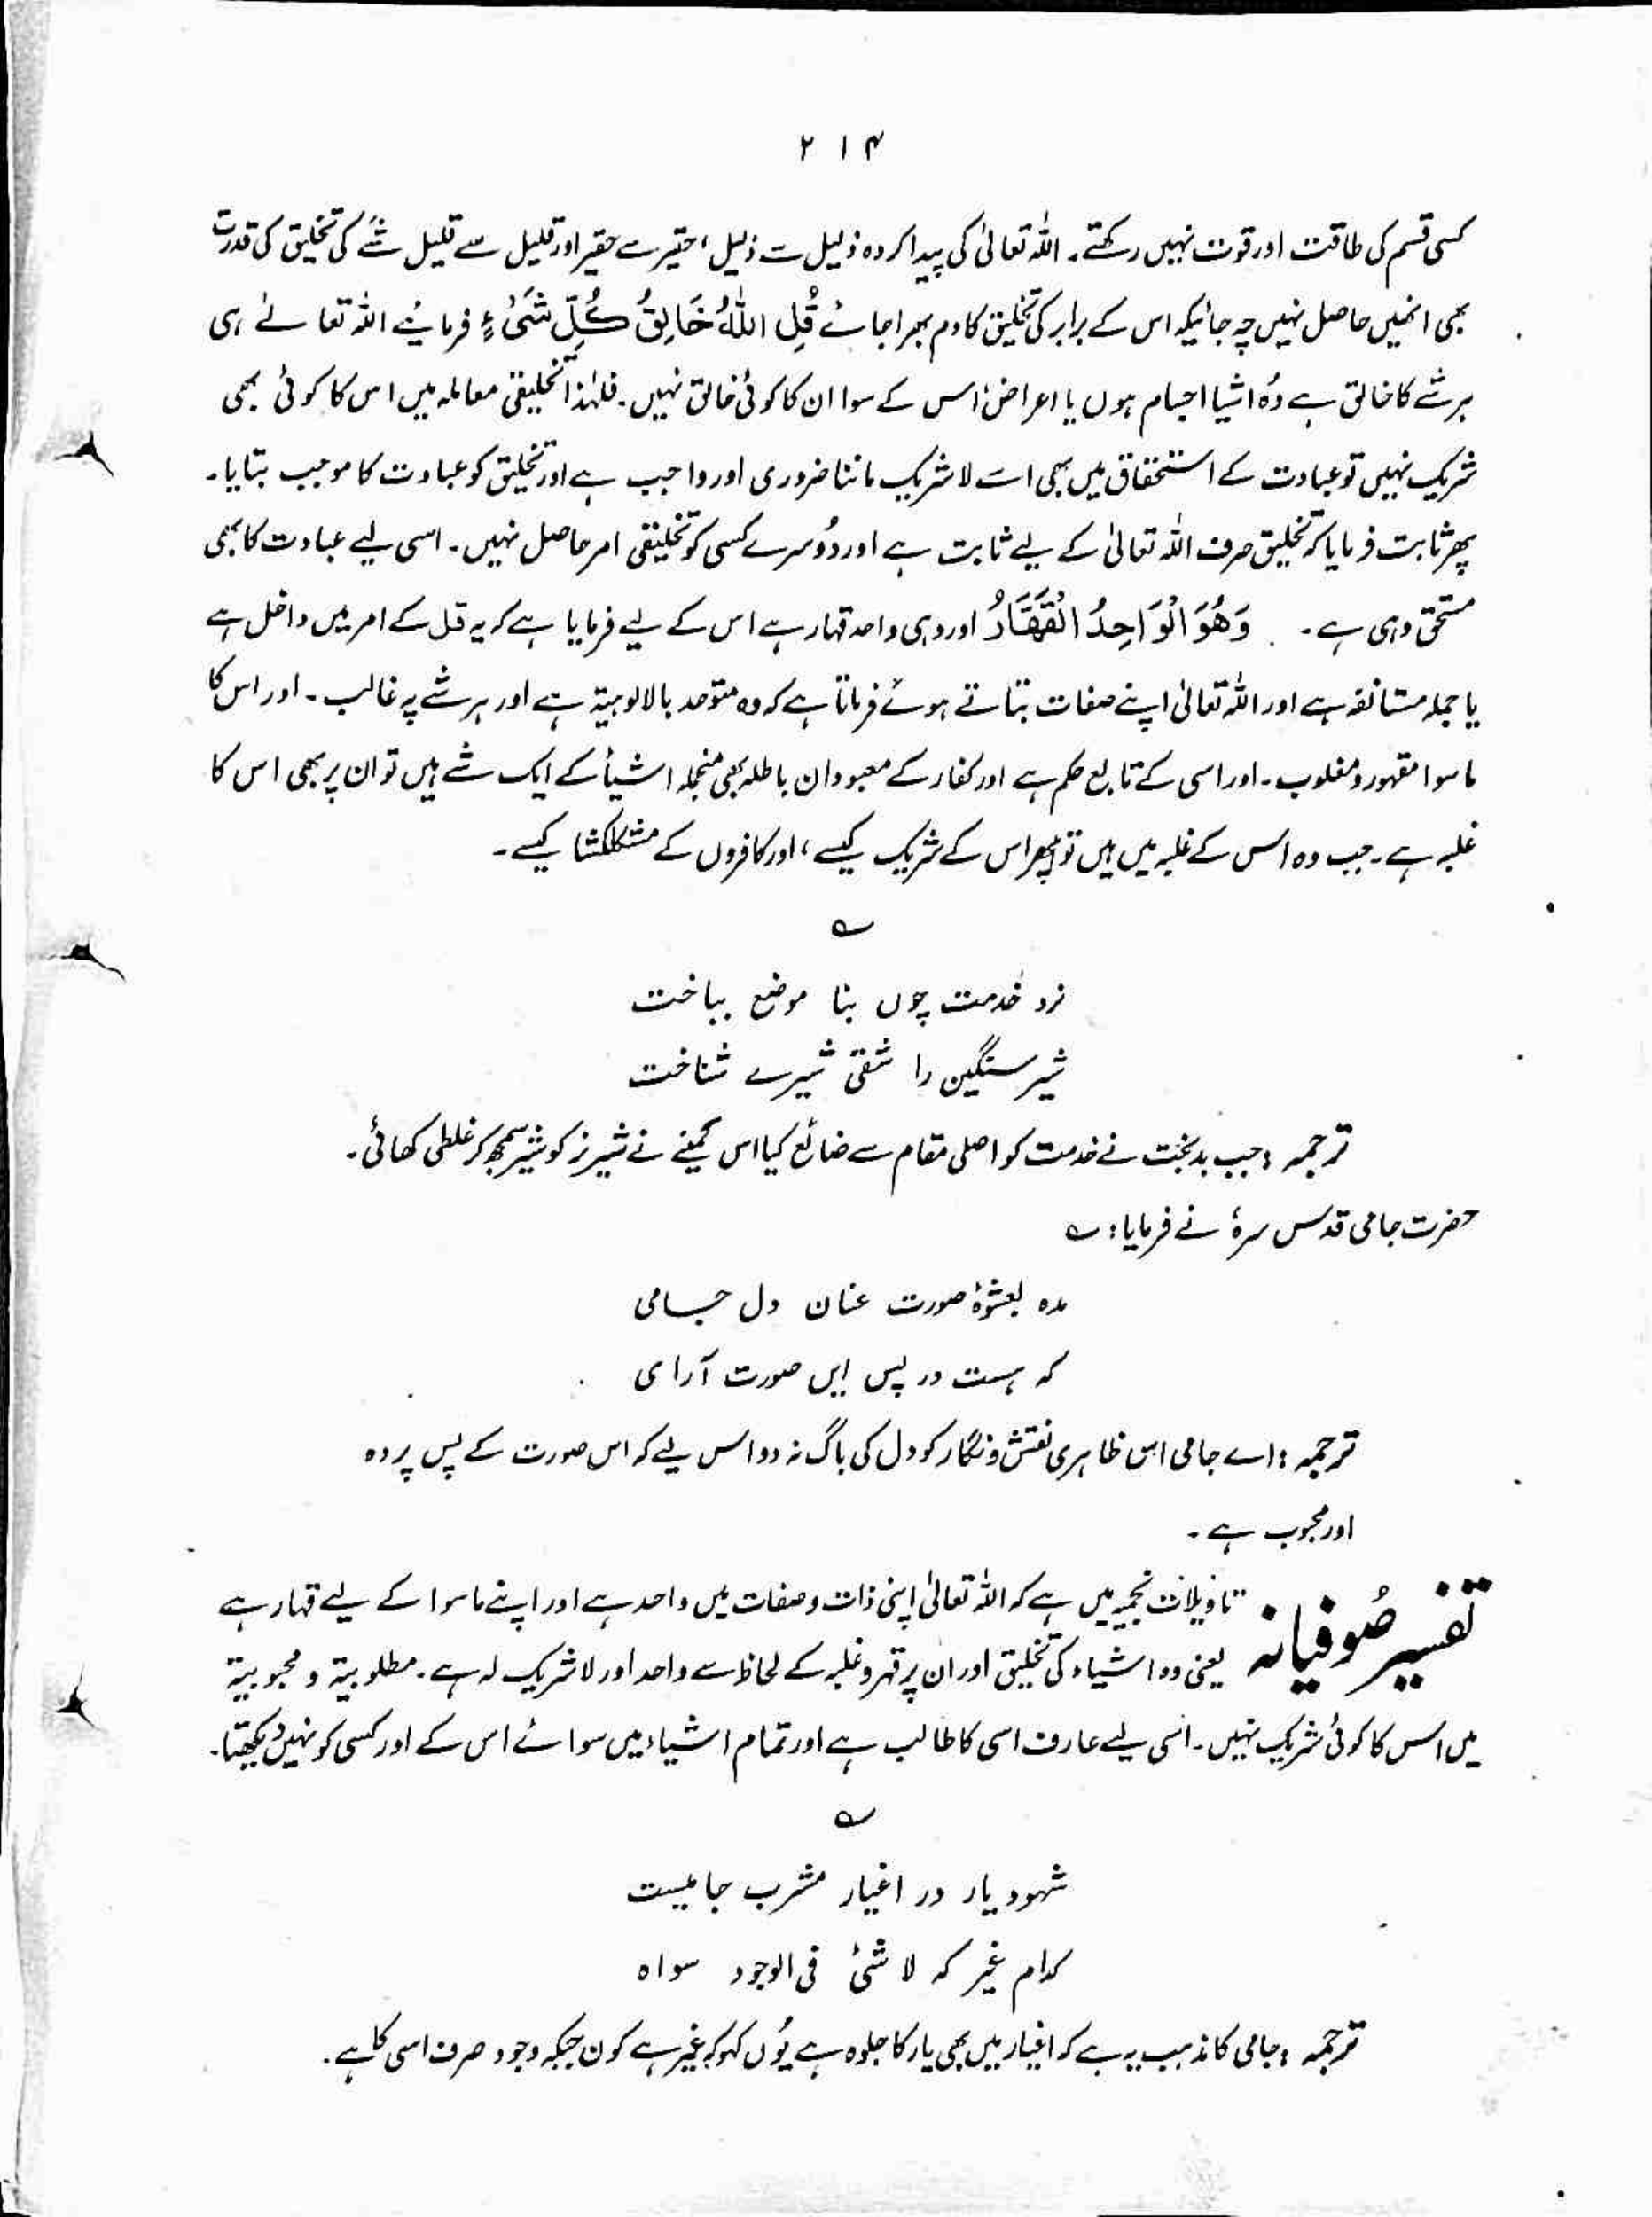 ۲۱۴
کسی قسم کی طاقت اور قوت نہیں رکھتے۔ اللہ تعالیٰ کی پیدا کردہ ذلیل سے ذلیل، حقیر سے حقیر اور قلیل سے قلیل شے کی تخلیق کی قدرت
بھی انھیں حاصل نہیں چہ جائیکہ اس کے برابر کی تخلیق کا دم بھرا جائے قُلِ اللّٰهُ خَالِقُ كُلِّ شَيْءٍ فرمائیے اللہ تعالےٰ ہی
ہر شے کا خالق ہے وُہ اشیا اجسام ہوں یا اعراض، اس کے سوا ان کا کوئی خالق نہیں۔ فلہٰذا تخلیقی معاملہ میں اس کا کوئی بھی
شریک نہیں تو عبادت کے استحقاق میں بھی اسے لاشریک ماننا ضروری اور واجب ہے اور تخلیق کو عبادت کا موجب بتایا۔
پھر ثابت فرمایا کہ تخلیق صرف اللہ تعالیٰ کے لیے ثابت ہے اور دُوسرے کسی کو تخلیقی امر حاصل نہیں۔ اسی لیے عبادت کا بھی
مستحق وہی ہے۔ وَهُوَ الْوَاحِدُ الْقَهَّارُ اور وہی واحد قہار ہے اس کے لیے فرمایا ہے کہ یہ قل کے امر میں داخل ہے
یا جملہ مستانفہ ہے اور اللہ تعالیٰ اپنے صفات بتاتے ہوئے فرماتا ہے کہ وہ متوحد بالالوہیۃ ہے اور ہر شے پہ غالب۔ اور اس کا
ماسوا مقہور و مغلوب۔ اور اسی کے تابع حکم ہے اور کفار کے معبودان باطلہ بھی منجملہ اشیأ کے ایک شے ہیں تو ان پر بھی اس کا
غلبہ ہے۔ جب وہ اس کے غلبہ میں ہیں تو پھر اس کے شریک کیسے، اور کافروں کے مشکلکشا کیسے۔
؎
نرد خدمت چوں بنا موضع بباخت
شیر سنگین را شقی شیرے شناخت
ترجمہ: جب بدبخت نے خدمت کو اصلی مقام سے ضائع کیا اس کمینے نے شیر نر کو شیر سمجھ کر غلطی کھائی۔
حضرت جامی قدس سرہٗ نے فرمایا: ؎
مدہ بعشوۂ صورت عنان دل جامی
کہ ہست در پس ایں صورت آرای
ترجمہ: اے جامی اس ظاہری نقش و نگار کو دل کی باگ نہ دو اس لیے کہ اس صورت کے پس پردہ
اور محبوب ہے۔
تفسیر صُوفیانہ تاویلات نجمیہ میں ہے کہ اللہ تعالیٰ اپنی ذات و صفات میں واحد ہے اور اپنے ماسوا کے لیے قہار ہے
یعنی وہ اشیاء کی تخلیق اور ان پر قہر و غلبہ کے لحاظ سے واحد اور لاشریک لہ ہے۔ مطلوبیۃ و محبوبیۃ
میں اس کا کوئی شریک نہیں۔ اسی لیے عارف اسی کا طالب ہے اور تمام اشیاء میں سوائے اس کے اور کسی کو نہیں دیکھتا۔
؎
شہود یار در اغیار مشرب جامیست
کدام غیر کہ لا شئ فی الوجود سواہ
ترجمہ: جامی کا مذہب یہ ہے کہ اغیار میں بھی یار کا جلوہ ہے یُوں کہو کہ غیر ہے کون جبکہ وجود صرف اسی کا ہے۔